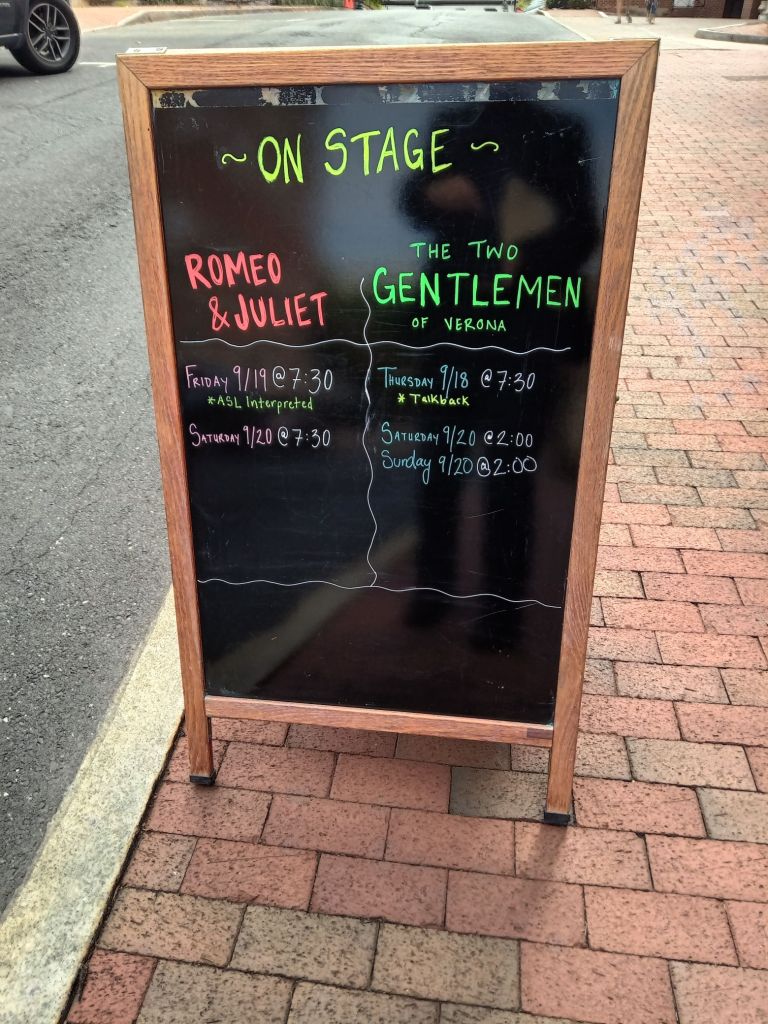 ~ ON STAGE ~
ROMEO
& JULIET
FRIDAY 9/19 @ 7:30
*ASL Interpreted
SATURDAY 9/20 @ 7:30
THE TWO
GENTLEMEN
OF VERONA
THURSDAY 9/18 @ 7:30
* Talkback
SATURDAY 9/20 @ 2:00
Sunday 9/20 @ 2:00